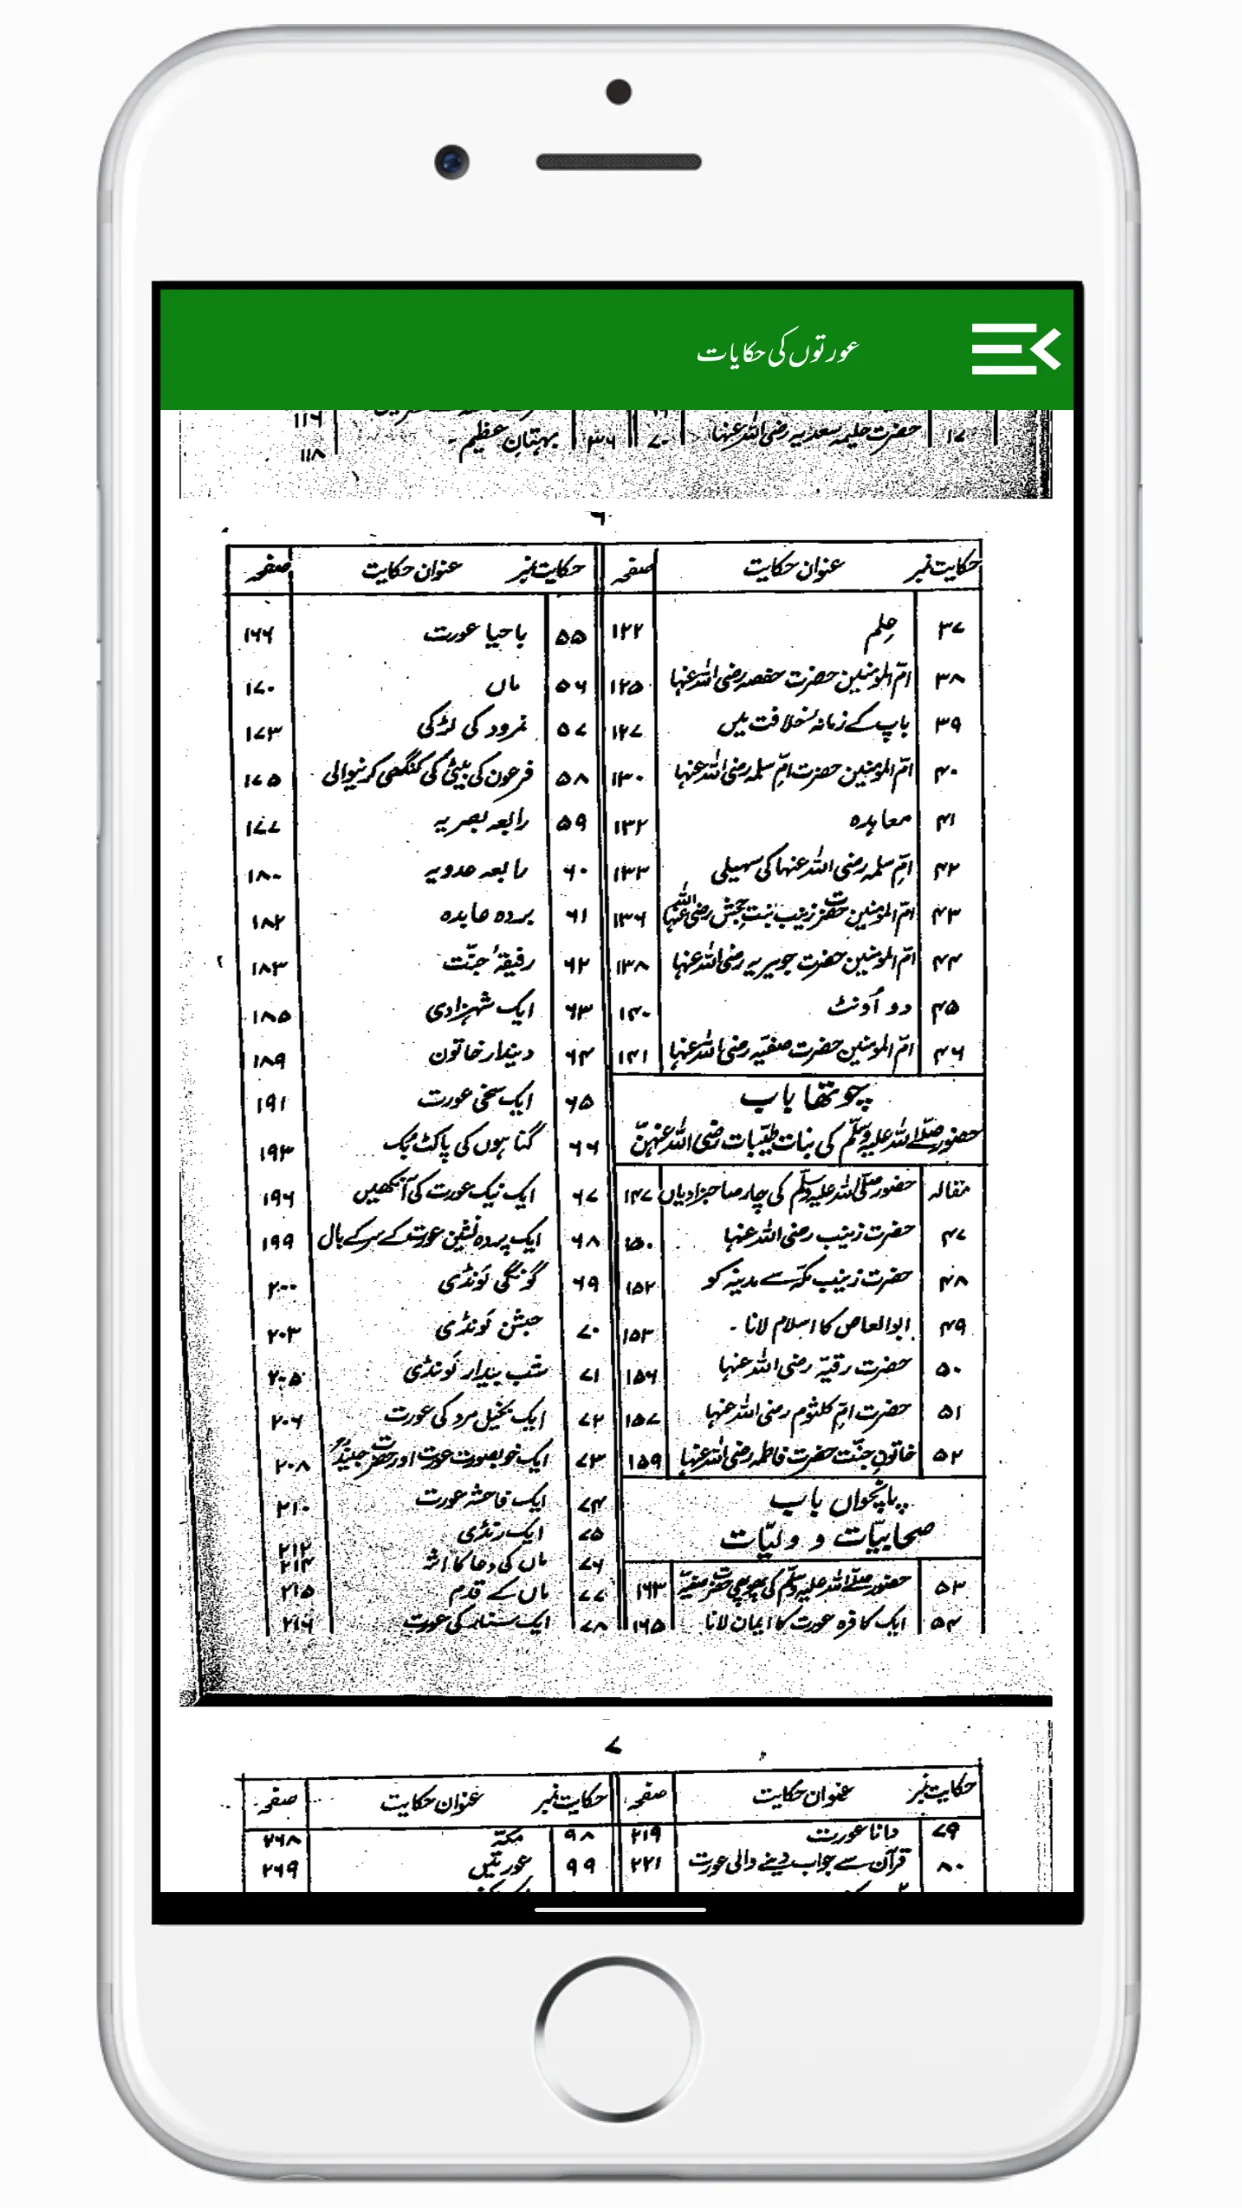 عورتوں کی حکایات
۱۷ حضرت حلیمہ سعدیہ رضی اللہ عنہا ۷۰
۳۶ بہتانِ عظیم - ۱۱۸
۱۱۶
۶
حکایت نمبر عنوان حکایت صفحہ
۳۷ حِلم ۱۲۲
۳۸ امّ المومنین حضرت حفصہ رضی اللہ عنہا ۱۲۵
۳۹ باپ کے زمانۂ خلافت میں ۱۲۷
۴۰ امّ المومنین حضرت امِّ سلمہ رضی اللہ عنہا ۱۳۰
۴۱ معاہدہ ۱۳۲
۴۲ امِّ سلمہ رضی اللہ عنہا کی سہیلی ۱۳۳
۴۳ امّ المومنین حضرت زینب بنت جحش رضی اللہ عنہا ۱۳۶
۴۴ امّ المومنین حضرت جویریہ رضی اللہ عنہا ۱۳۸
۴۵ دو اُونٹ ۱۴۰
۴۶ امّ المومنین حضرت صفیّہ رضی اللہ عنہا ۱۴۱
چوتھا باب
حضور صلّے اللہ علیہ وسلّم کی بنات طیّبات رضی اللہ عنہنّ
مقالہ حضور صلّی اللہ علیہ وسلّم کی چار صاحبزادیاں ۱۴۷
۴۷ حضرت زینب رضی اللہ عنہا ۱۵۰
۴۸ حضرت زینب مکّہ سے مدینہ کو ۱۵۲
۴۹ ابوالعاص کا اسلام لانا - ۱۵۳
۵۰ حضرت رقیّہ رضی اللہ عنہا ۱۵۶
۵۱ حضرت امِّ کلثوم رضی اللہ عنہا ۱۵۷
۵۲ خاتونِ جنّت حضرت فاطمہ رضی اللہ عنہا ۱۵۹
پانچواں باب
صحابیّات و ولیّات
۵۳ حضور صلّے اللہ علیہ وسلّم کی پھوپھی حضرت صفیہؓ ۱۶۳
۵۴ ایک کافرہ عورت کا ایمان لانا ۱۶۵
حکایت نمبر عنوان حکایت صفحہ
۵۵ باحیا عورت ۱۶۶
۵۶ ماں ۱۷۰
۵۷ نمرود کی لڑکی ۱۷۳
۵۸ فرعون کی بیٹی کی کنگھی کرنیوالی ۱۷۵
۵۹ رابعہ بصریہ ۱۷۷
۶۰ رابعہ عدویہ ۱۸۰
۶۱ بردہ عابدہ ۱۸۲
۶۲ رفیقۂ جنّت ۱۸۳
۶۳ ایک شہزادی ۱۸۵
۶۴ دیندار خاتون ۱۸۹
۶۵ ایک سخی عورت ۱۹۱
۶۶ گناہوں کی پاکٹ بک ۱۹۳
۶۷ ایک نیک عورت کی آنکھیں ۱۹۶
۶۸ ایک پردہ نشین عورت کے سر کے بال ۱۹۹
۶۹ گونگی لونڈی ۲۰۰
۷۰ حبشن لونڈی ۲۰۳
۷۱ شب بیدار لونڈی ۲۰۵
۷۲ ایک بخیل مرد کی عورت ۲۰۶
۷۳ ایک خوبصورت عورت اور حضرت جنیدؒ ۲۰۸
۷۴ ایک فاحشہ عورت ۲۱۰
۷۵ ایک رنڈی ۲۱۲
۷۶ ماں کی دعا کا اثر ۲۱۴
۷۷ ماں کے قدم ۲۱۵
۷۸ ایک سنار کی عورت ۲۱۶
۷
حکایت نمبر عنوان حکایت صفحہ
۷۹ دانا عورت ۲۱۹
۸۰ قرآن سے جواب دینے والی عورت ۲۲۱
حکایت نمبر عنوان حکایت صفحہ
۹۸ مکّہ ۲۶۸
۹۹ عورتیں ۲۶۹